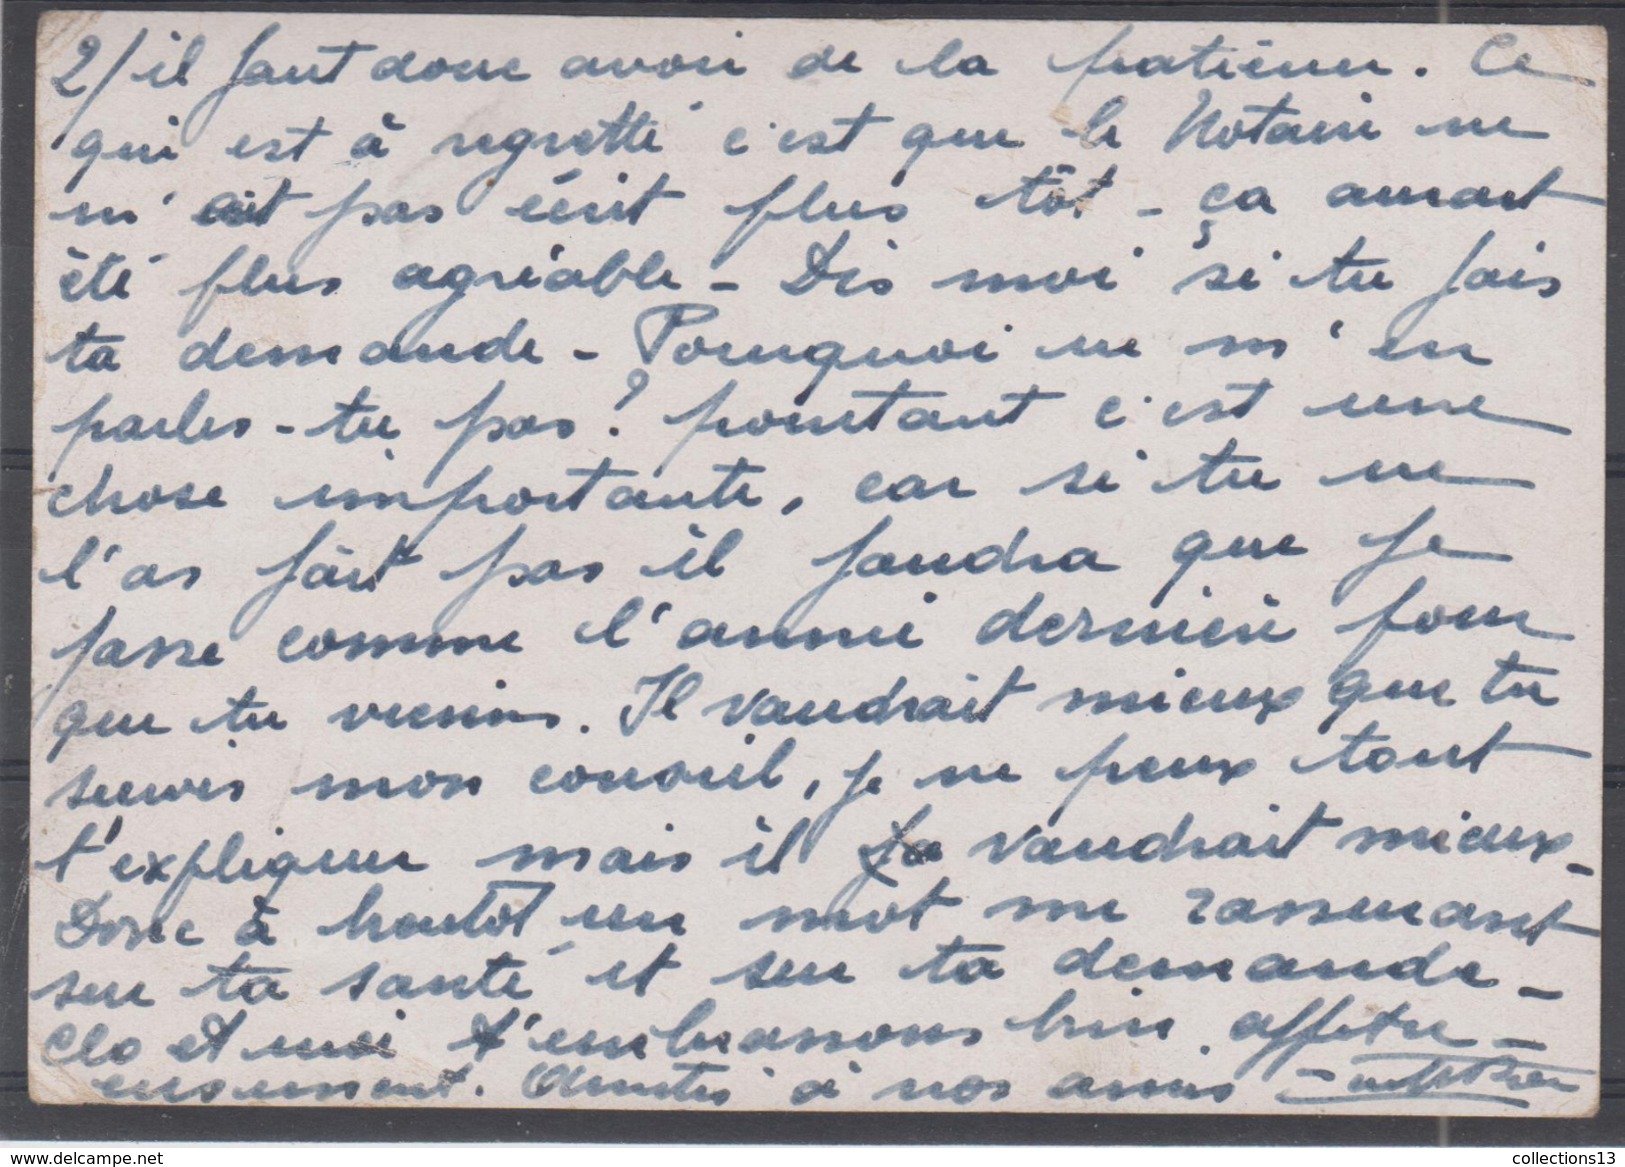 2/ il faut donc avoir de la patience. Ce
qui est à regretté c'est que le Notaire ne
m'ait pas écrit plus tôt - ça aurait
été plus agréable - Dis moi si tu fais
ta demande - Pourquoi ne m'en
parles-tu pas? pourtant c'est une
chose importante, car si tu ne
l'as fait pas il faudra que je
fasse comme l'année dernière pour
que tu viennes. Il vaudrait mieux que tu
suives mon conseil, je ne peux tout
t'expliquer mais il vaudrait mieux -
Donc à bientôt un mot me rassurant
sur ta santé et sur ta demande -
Clo et moi t'embrassons bien affectu-
eusement. Amitiés à nos amis -
www.delcampe.net
collections13